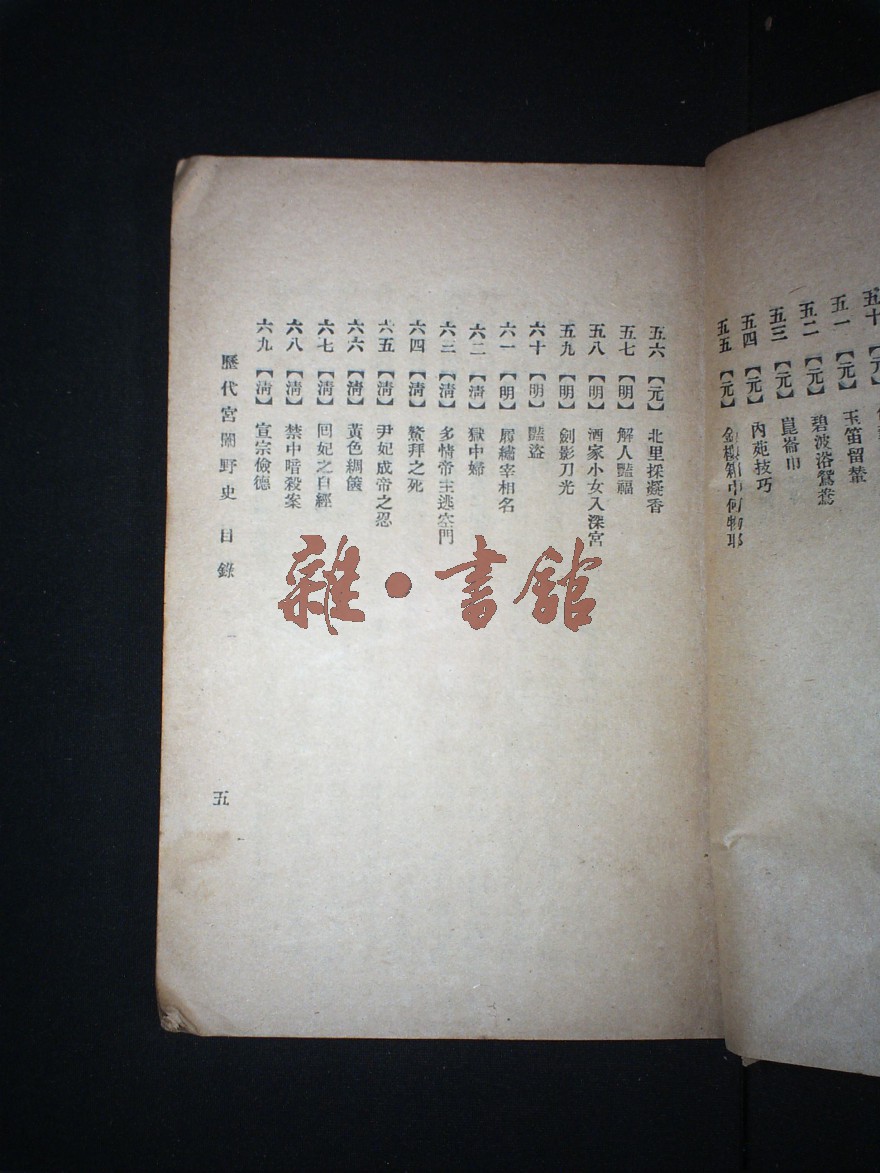 五十 【元】
五一 【元】 玉笛留輦
五二 【元】 碧波浴鴛鴦
五三 【元】 崑崙巾
五四 【元】 內苑技巧
五五 【元】 金櫃箱中何物耶
五六 【元】 北里採凝香
五七 【明】 解人豔福
五八 【明】 酒家小女入深宮
五九 【明】 劍影刀光
六十 【明】 豔盜
六一 【明】 屑繡宰相名
六二 【清】 獄中婦
六三 【清】 多情帝主逃空門
六四 【清】 鰲拜之死
六五 【清】 尹妃成帝之忍
六六 【清】 黃色綢儀
六七 【清】 囘妃之自經
六八 【清】 禁中喑殺案
六九 【清】 宣宗儉德
歷代宮闈野史 目錄
五
雜・書館